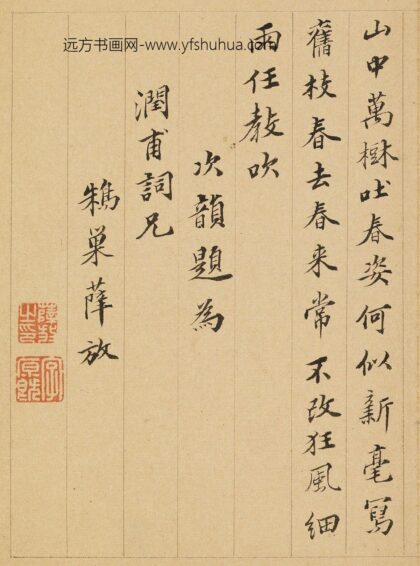 远方书画网-www.yfshuhua.com
山中萬樹吐春姿何似新毫寫
舊枝春去春来常不改狂風細
雨任教吹
次韻題為
潤甫詞兄
鶴巢薛放